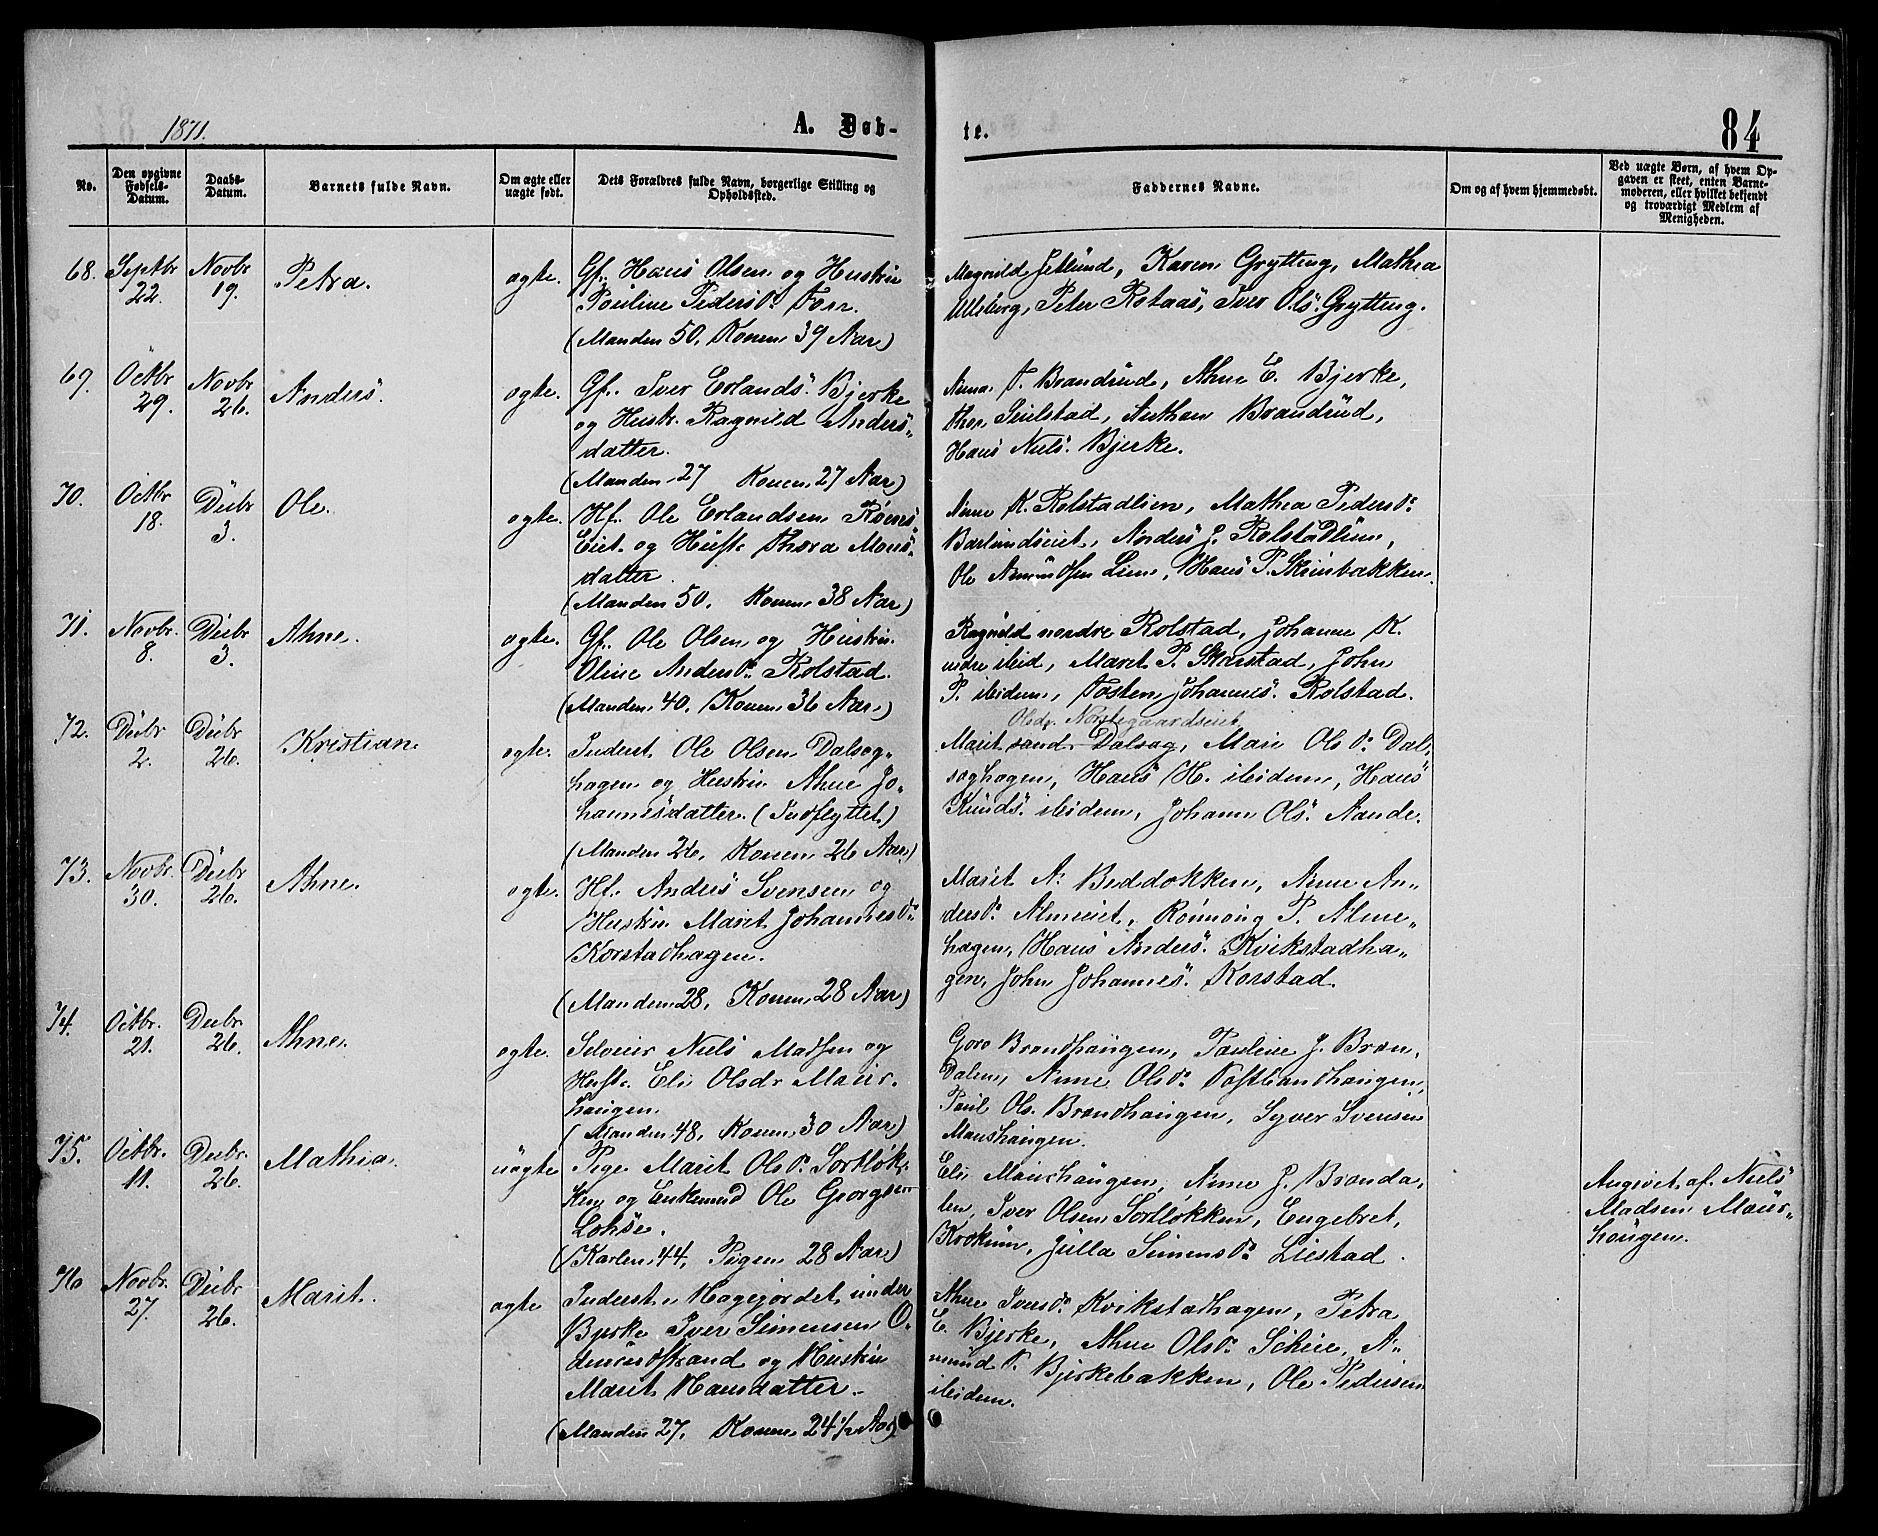 1871.
A. Døb-
te.
84
No.
Den opgivne
Fødsels-
Datum.
Daabs-
Datum.
Barnets fulde Navn.
Om ægte eller
uægte født.
Dets Forældres fulde Navn, borgerlige Stilling og
Opholdssted.
Faddernes Navne.
Om og af hvem hjemmedøbt.
Ved uægte Børn, af hvem Op-
gaven er skeet, enten Barne-
moderen, eller hvilket bekjendt
og troværdigt Medlem af
Menigheden.
68.
Septbr
22.
Novbr
19.
Petra.
ægte.
Gf. Hans Olsen og Hustru
Pouline Pedersd.
(Manden 50, Konen 39 Aar)
Magnild Jetlund, Karen Grytting, Mathea
Ulsberg, Peter Rolaas, Iver Ols. Grytting.
69.
Octbr
29.
Novbr
26.
Anders.
ægte.
Gf. Iver Erlands. Bjerke
og Hustr. Ragnild Anders-
datter.
(Manden 27 Konen 27 Aar)
Anna T. Brandrud, Ahne E. Bjerke,
Seielstad, Anthon Brandrud,
Hans Niels. Bjerke.
70.
Octbr
18.
Decbr
3.
Ole.
ægte.
Hf. Ole Erlandsen Rønes
Eiet og Hustr. Thora Mons-
datter.
(Manden 50. Konen 38 Aar)
Anne K. Rolstadlien, Mathea Pedersd.
Barlundseiet, Anders J. Rolstadlien,
Ole Amundsen Lien, Hans P. Skinbakken.
71.
Novbr.
8.
Decbr
3.
Ahne.
ægte.
Gf. Ole Olsen og Hustru
Oline Andersd. Rolstad.
(Manden 40, Konen 36 Aar)
Ragnild nordre Rolstad, Johanne K.
nedre ibid, Marit P. Skarstad, John
P. ibidem, Tosten Johannes. Rolstad.
72.
Decbr
2.
Decbr
26.
Kristian.
ægte.
Inderst Ole Olsen Dalseg-
hagen og Hustru Ahne Jo-
hannesdatter (Indflyttet)
(Manden 26, Konen 26 Aar)
Olsdr. Norstegaardseiet
Marit Dalseg, Mari Olsd. Dal-
seghagen, Hans H. ibidem, Hans
Knuds. ibidem, Johann Ols. Aande.
73.
Novbr.
30.
Decbr
26.
Ahne.
ægte.
Hf. Anders Svensen og
Hustru Marit Johannesd.
Korstadhagen.
(Manden 28, Konen 28 Aar)
Marit A. Beddokken, Anne An-
dersd. Almeeiet, Rønnoug P. Alme-
hagen, Hans Anders. Kvikstadha-
gen, John Johannes. Korstad.
74.
Octbr.
21.
Decbr
26.
Ahne.
ægte.
Selveier Niels Madsen og
Hustr. Eli Olsdr Maur-
haugen.
(Manden 48, Konen 30 Aar)
Goro Brandhaugen, Pauline J. Bran-
Dalen, Anne Olsd. haugen,
Paul Ols. Brandhaugen, Syver Svensen
Maurhaugen.
75.
Octbr.
11.
Decbr.
26.
Mathia.
uægte
Pige Marit Olsd. Sortløk-
ken og Enkemand Ole Georgsen
Lohse.
(Karlen 44, Pigen 28 Aar)
Eli Maurhaugen, Anne J. Branda-
len, Iver Olsen Sortløkken, Engebret
Krokum, Julla Simensd. Liestad.
Angivet af Niels
Madsen Maur-
haugen.
76
Novbr.
27.
Decbr
26.
Marit.
ægte
Inderst i Hagejordet under
Bjerke Iver Simensen O-
demundstrand og Hustru
Marit Hansdatter.
(Manden 27, Konen 24½ Aar)
Ahne Iversd. Kvikstadhagen, Petra
E. Bjerke, Ahne Olsd. Scheie, A-
mund P. Bjerkebakken, Ole Pedersen
ibidem.